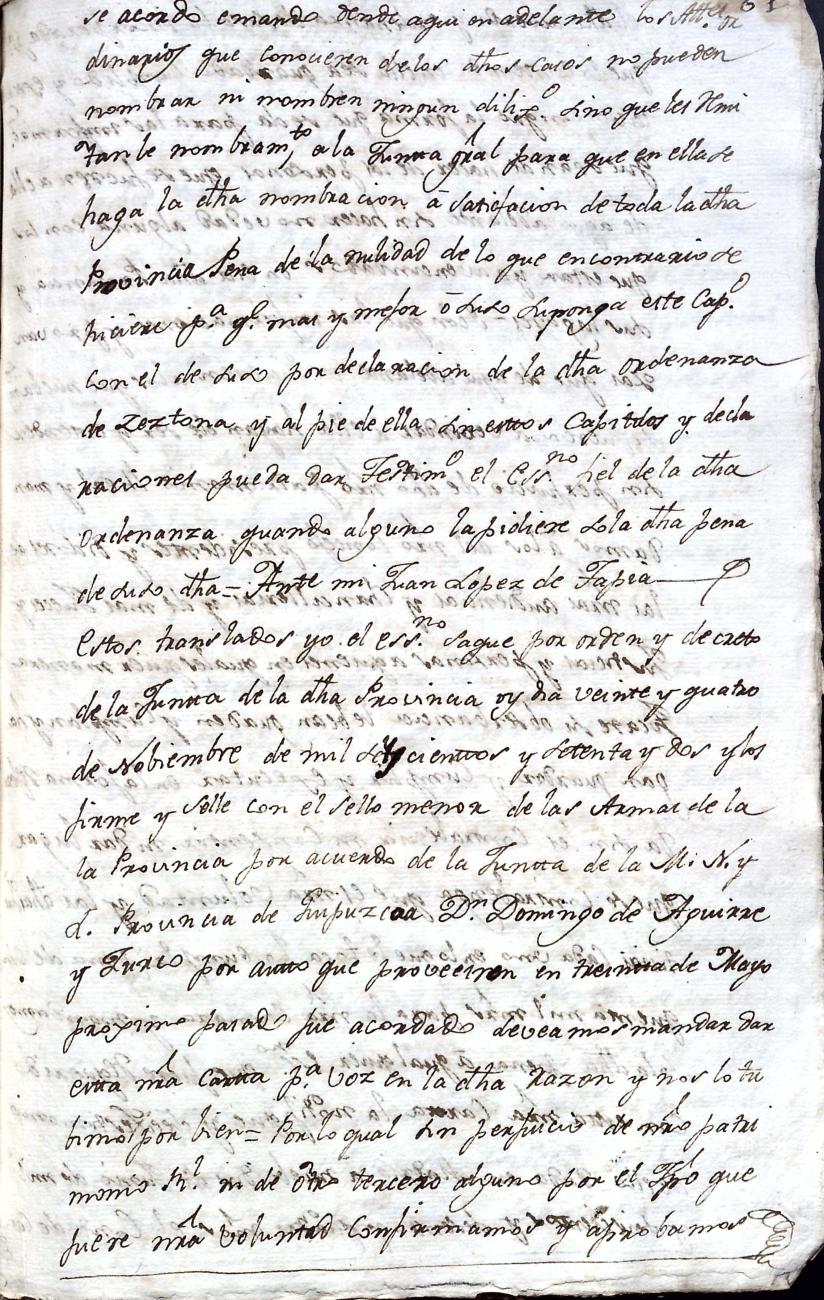 se acordo e mando dende aqui en adelante los Alldes or
dinarios que conocieren de los dhos casos no pueden
nombrar ni nombren ningun dilixo. sino que les Remi
tan le nombramto a la Juntta gral para que en ella se
haga la dha nombracion a satisfacion de toda la dha
Provincia Pena de la nulidad de lo que en contrario se
hiciere pa ql. mas y mejor o suso suponga este Capo
con el de suso por declaracion de la dha ordenanza
de Zeztona y al pie de ella sin estos Capitulos y decla
raciones pueda dar Testimo el essno fiel de la dha
ordenanza quando alguno la pidiere so la dha pena
de suso dha = Ante mi Juan Lopez de Tapia
estos translados yo el essno saque por orden y decreto
de la Juntta de la dha Provincia oy dia veinte y quatro
de Nobiembre de mil seyscienttos y setenta y dos y los
firme y selle con el sello menor de las Armas de la
la Provincia por acuerdo de la Juntta de la M. N. y
L. Provincia de Guipuzcoa Dn Domingo de Aguirre
y Junco por autto que proveeiron en treintta de Mayo
proximo pasado fue acordado deveamos mandar dar
estta nra Cartta pa. voz en la dha Razon y nos lo tu
bimos por bien = Por lo qual sin perjuicio de nro patri
monio Rl. ni de otro tercero alguno por el tpo que
fuere nra voluntad Confirmamos y aprobamos